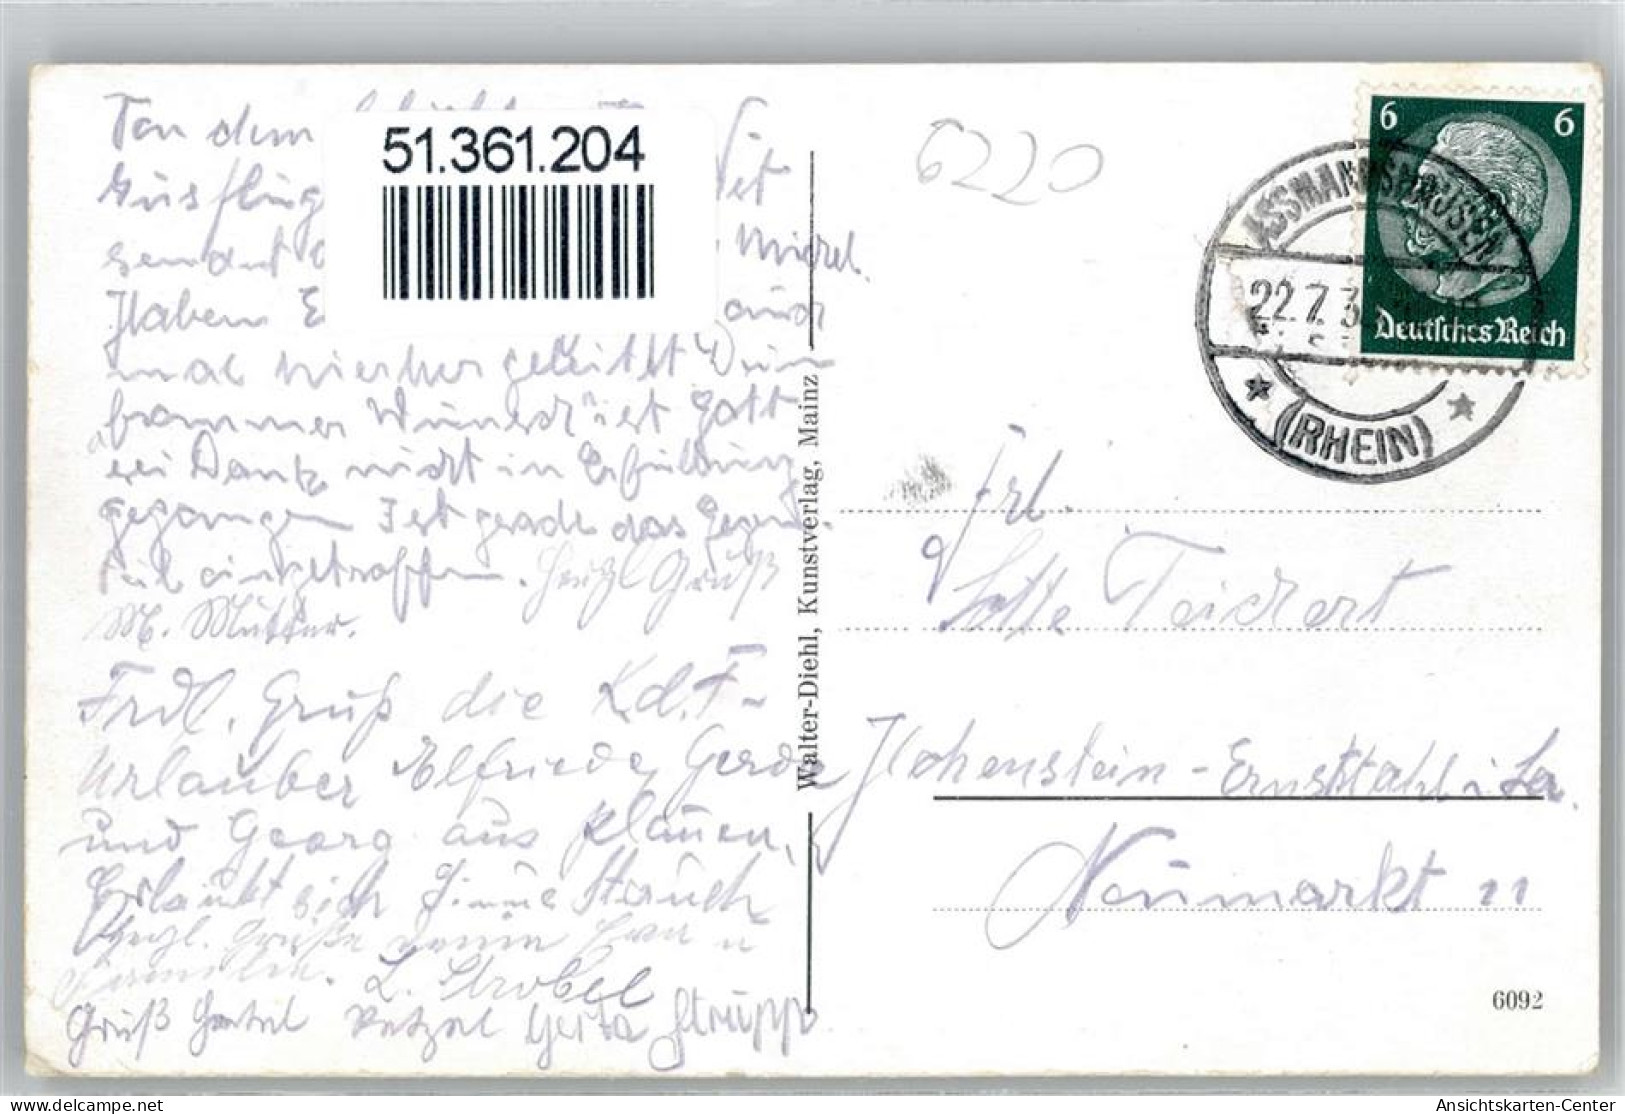 Von dem
Ausflug
sendet
Haben
51.361.204
Michel.
auch
mal hierher geleitet "Dein
frommer Wunsch" ist Gott
sei Dank nicht in Erfüllung
gegangen Ist gerade das Gegen-
teil eingetroffen. Herzl Gruß
M. Mutter.
Frdl. Gruß die K.d.F-
Urlauber Elfriede, Gerda
und Georg aus Plauen,
Erlaubt sich
Herzl. Grüße Frau u
Familie. L. Strobel
Gruß Gerta Strupp
Walter-Diehl, Kunstverlag, Mainz
6220
6 6
Deutsches Reich
ASSMANNSHAUSEN
22.7.3
(RHEIN)
Frl.
Lotte Teichert
Hohenstein-Ernstthal i Sa.
Neumarkt 11
6092
delcampe.net
Ansichtskarten-Center